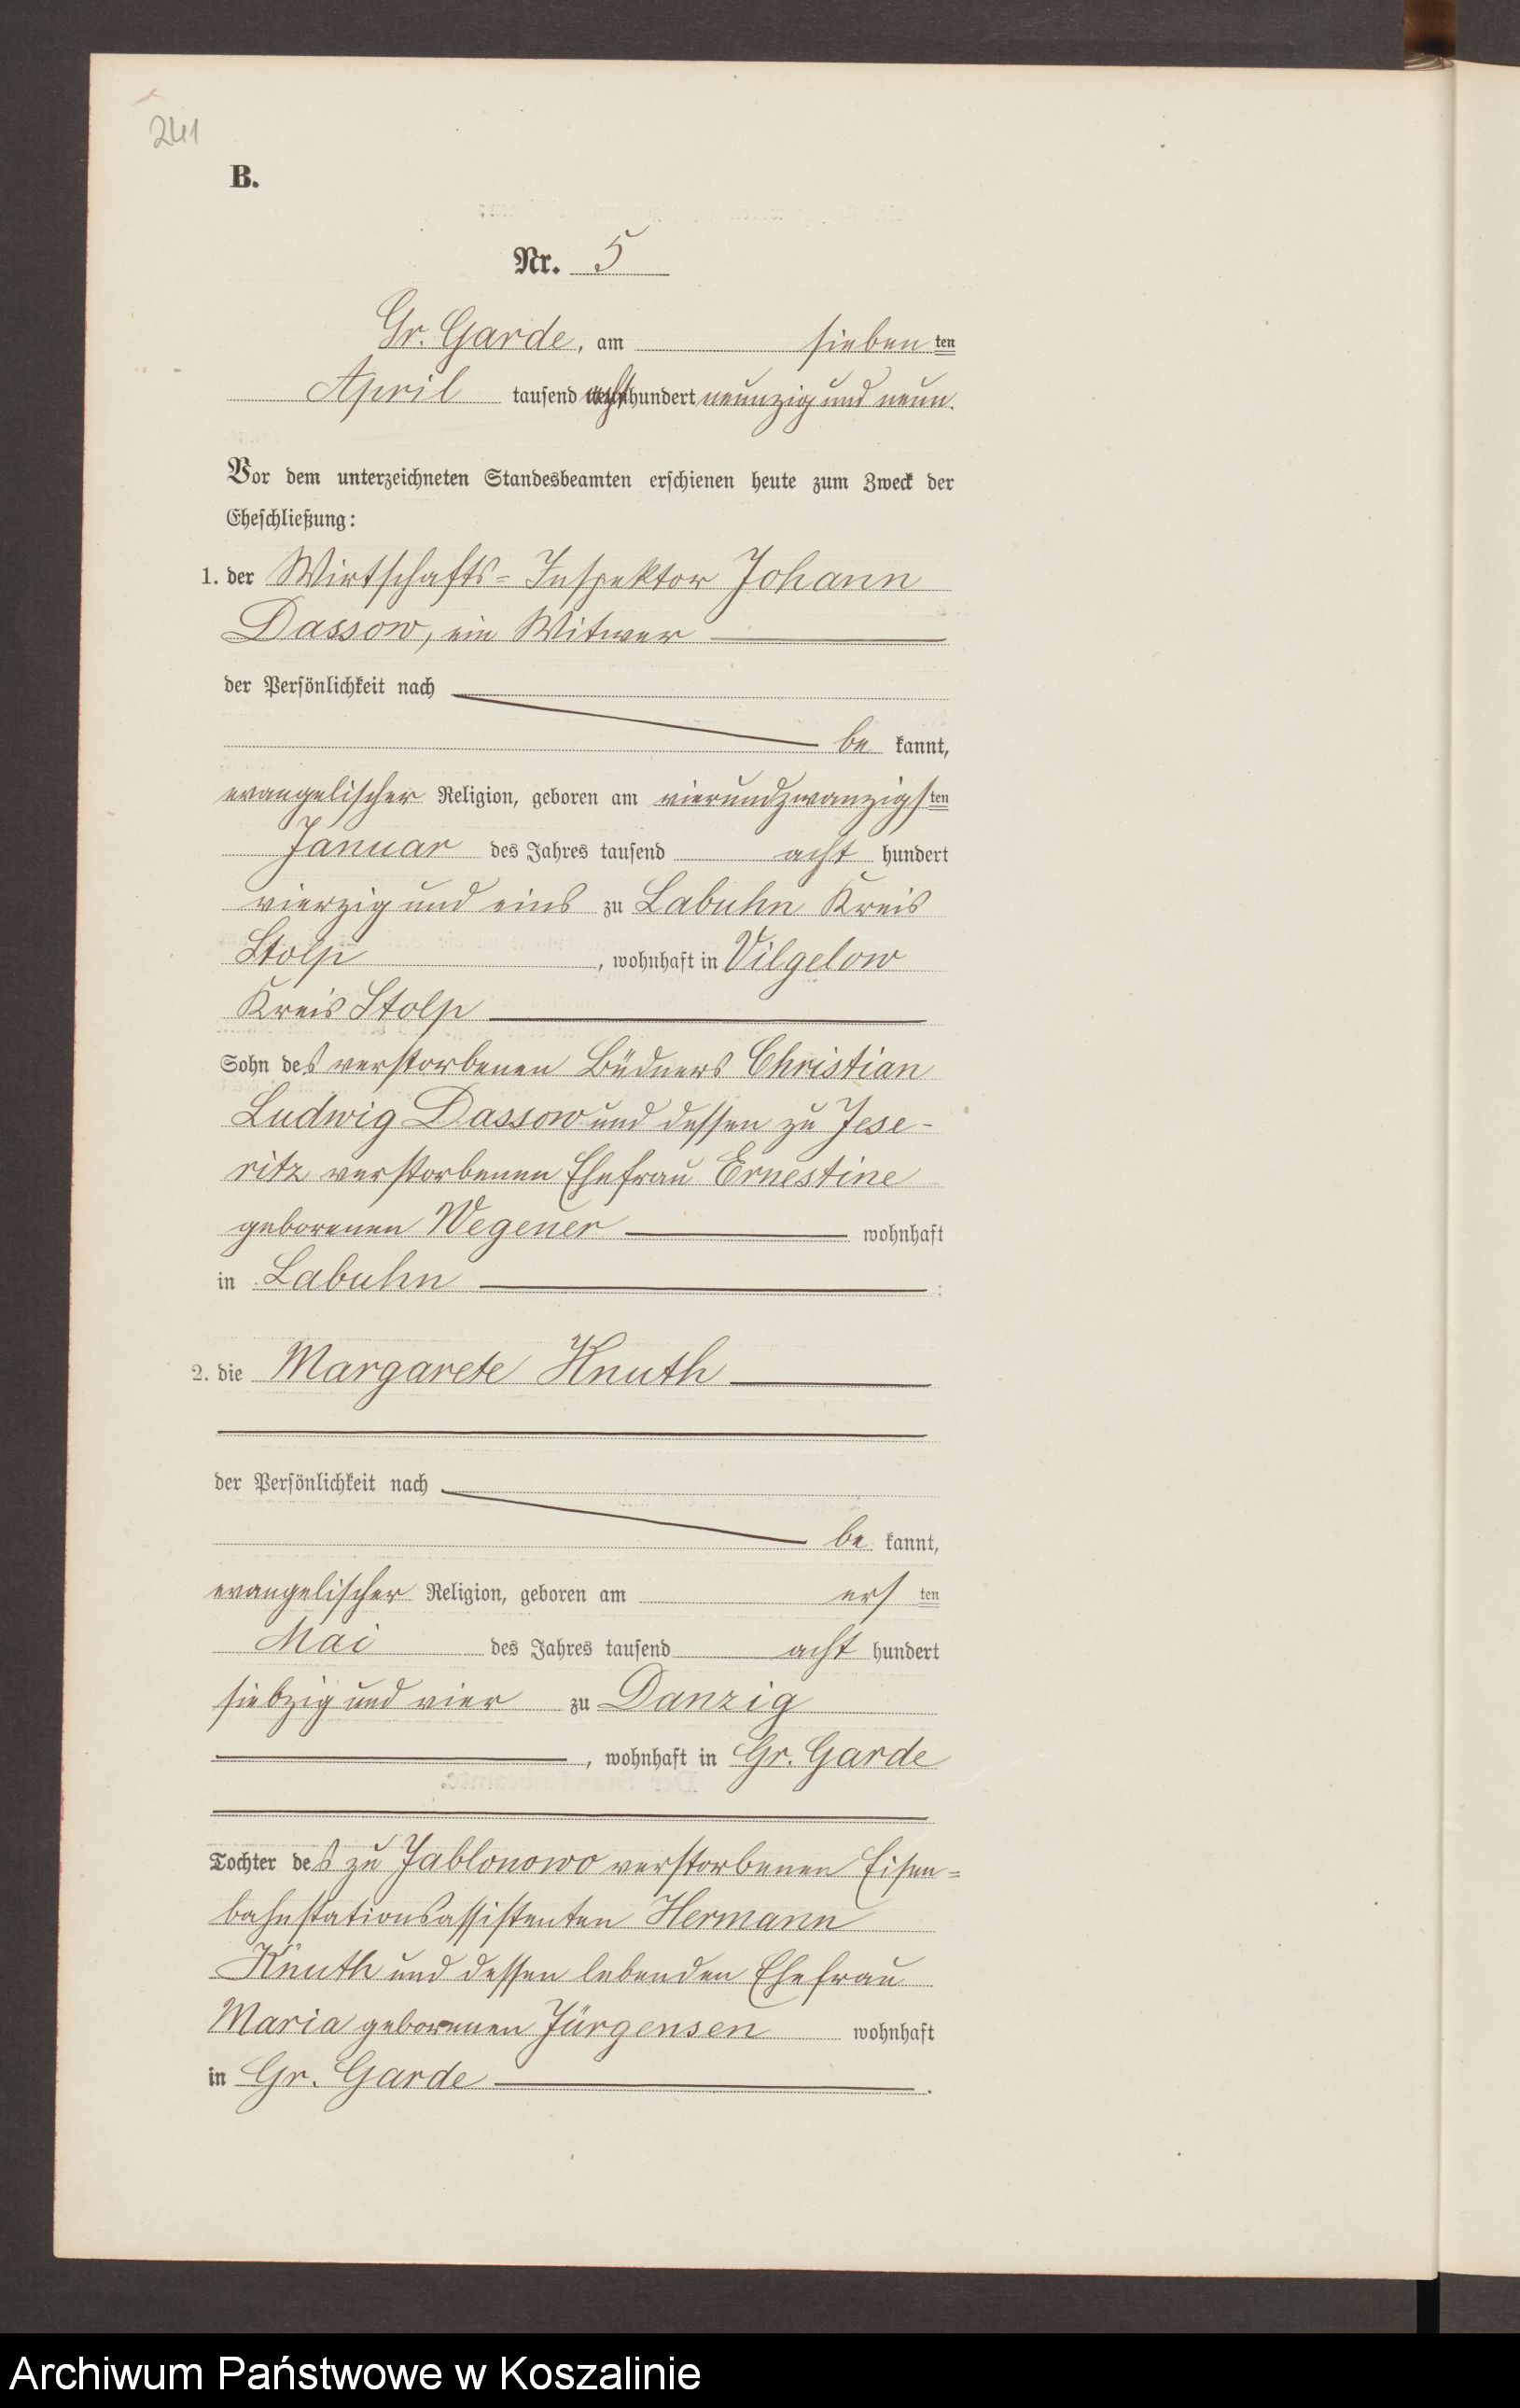 241
B.
Nr. 5
Gr. Garde, am sieben ten
April tausend acht hundert neunzig und neun.
Vor dem unterzeichneten Standesbeamten erschienen heute zum Zweck der
Eheschließung:
1. der Wirtschafts-Inspektor Johann
Dassow, ein Witwer
der Persönlichkeit nach
be kannt,
evangelischer Religion, geboren am vierundzwanzigsten
Januar des Jahres tausend acht hundert
vierzig und eins zu Labuhn Kreis
Stolp, wohnhaft in Vilgelow
Kreis Stolp
Sohn des verstorbenen Büdners Christian
Ludwig Dassow und dessen zu Jese-
ritz verstorbenen Ehefrau Ernestine
geborenen Wegener wohnhaft
in Labuhn :
2. die Margarete Knuth
der Persönlichkeit nach
be kannt,
evangelischer Religion, geboren am ers ten
Mai des Jahres tausend acht hundert
siebzig und vier zu Danzig
, wohnhaft in Gr. Garde
Tochter des zu Jablonowo verstorbenen Eisen-
bahnstationsassistenten Hermann
Knuth und dessen lebenden Ehefrau
Maria geborenen Jürgensen wohnhaft
in Gr. Garde .
Archiwum Państwowe w Koszalinie